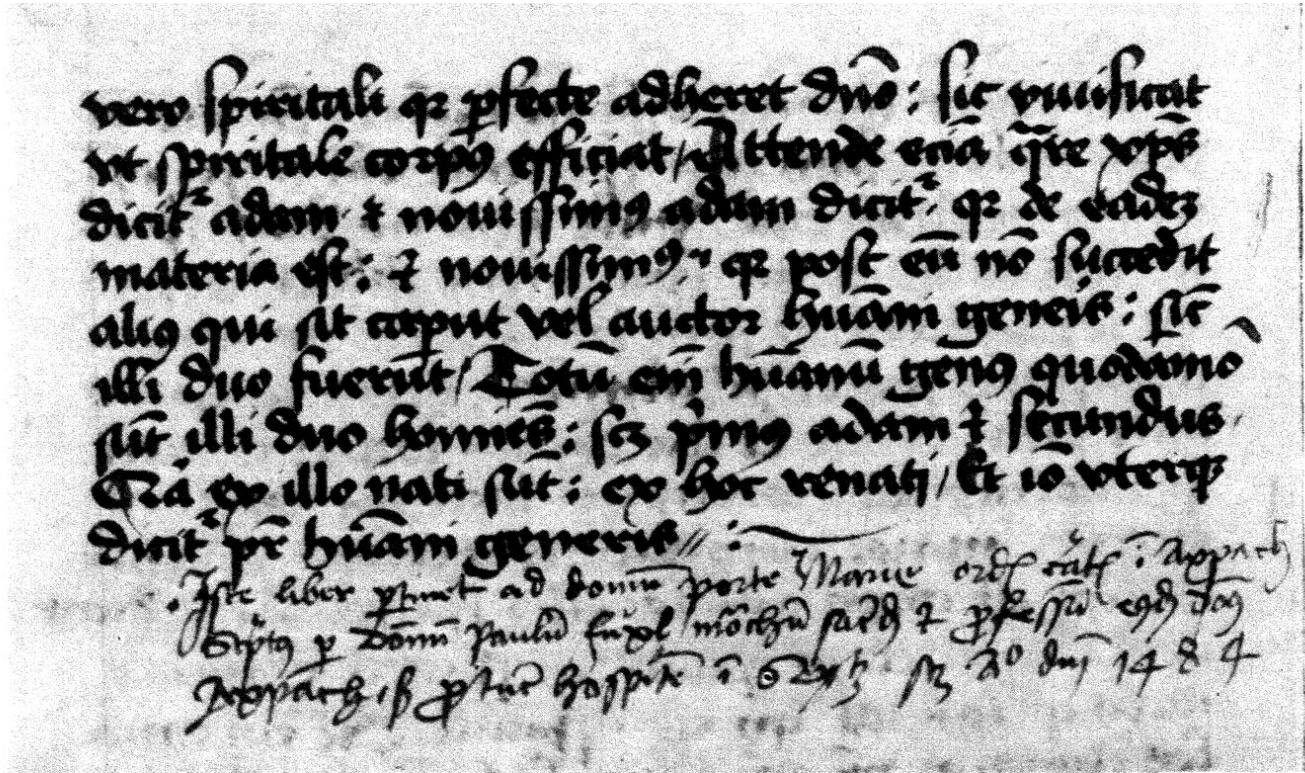 vero spiritali qr ꝑfecte adheret dno̅ : sic viuificat
vt spiritale corpꝰ efficiat / Attende ecia̅ qͣre xp̅s
dicit᷑ adam ⁊ nouissimꝰ adam dicit᷑ . qr de eadeꝫ
materia est : ⁊ nouissimꝰ qr post eu̅ no̅ succedit
aliꝰ qui sit caput vel auctor hu̅ani gene̅is : sic̅
illi duo fueru̅t / Totu̅ em̅ hu̅anu̅ genꝰ quodamo̅
su̅t illi duo homines̅ : scꝫ pͥmꝰ adam ⁊ secundus .
Qͥa ex illo nati su̅t : ex hoc renati / Et io̅ vterqꝫ
dicit᷑ pr̅ hu̅ani generis // :~
. Iste liber ꝑtinet ad domu̅ porte Marie ord̅ cart̅ i̅ Axpach
Sc̅ptꝰ ꝑ Domnu̅ Paulu̅ mo̅chu̅ sac̅d ⁊ ꝓfessu̅ eiꝰd̅ domꝰ
Axpach . sꝫ ꝓ tu̅c hospite̅ i̅ scꝫ Ao dni̅ 1484